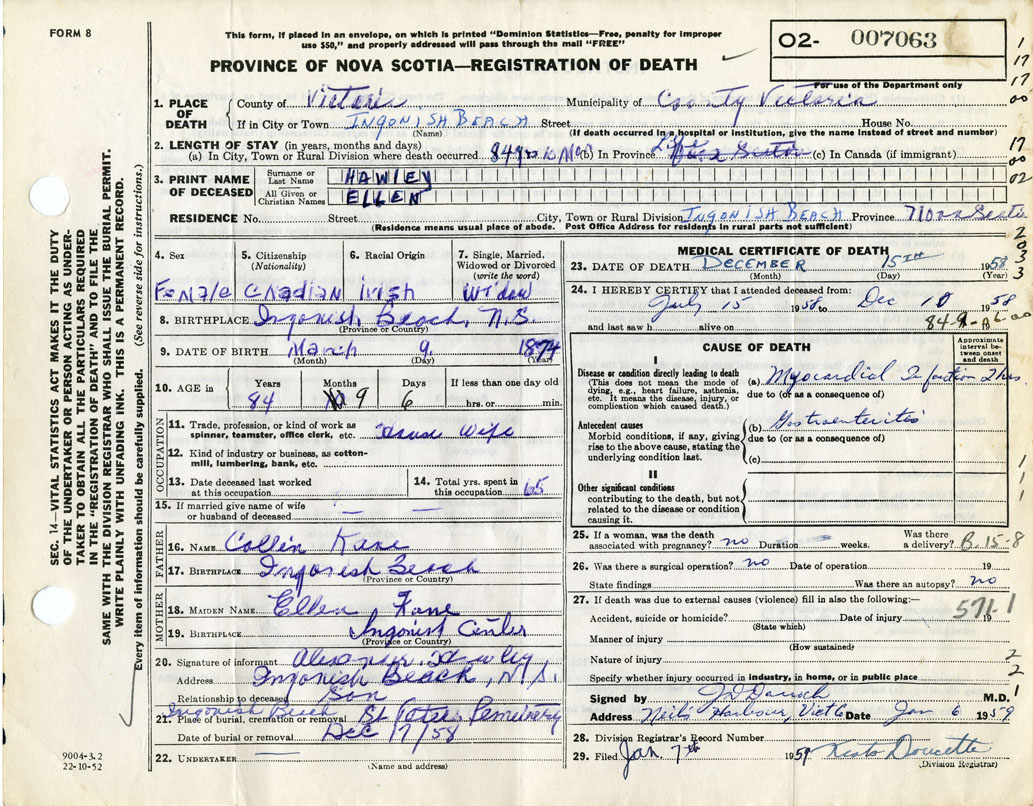 FORM 8
This form, if placed in an envelope, on which is printed "Dominion Statistics—Free, penalty for improper
use $50," and properly addressed will pass through the mail "FREE"
O2- 007063
For use of the Department only
PROVINCE OF NOVA SCOTIA—REGISTRATION OF DEATH
1. PLACE OF DEATH
County of Victoria Municipality of County Victoria
If in City or Town INGONISH BEACH Street House No.
(Name) (If death occurred in a hospital or institution, give the name instead of street and number)
2. LENGTH OF STAY (in years, months and days)
(a) In City, Town or Rural Division where death occurred 84 (b) In Province Life (c) In Canada (if immigrant)
3. PRINT NAME OF DECEASED
Surname or Last Name HAWLEY
All Given or Christian Names ELLEN
RESIDENCE No. Street City, Town or Rural Division INGONISH BEACH Province Nova Scotia
(Residence means usual place of abode. Post Office Address for residents in rural parts not sufficient)
4. Sex 5. Citizenship (Nationality) 6. Racial Origin 7. Single, Married, Widowed or Divorced (write the word)
Female Cnadian irish Widow
8. BIRTHPLACE Ingonish, Beach, N.S.
(Province or Country)
9. DATE OF BIRTH March 9. 1874
(Month) (Day) (Year)
10. AGE in Years Months Days If less than one day old
84 9 6 hrs. or min.
OCCUPATION
11. Trade, profession, or kind of work as spinner, teamster, office clerk, etc. House Wife
12. Kind of industry or business, as cotton-mill, lumbering, bank, etc.
13. Date deceased last worked at this occupation
14. Total yrs. spent in this occupation 65
15. If married give name of wife or husband of deceased
FATHER
16. NAME Collin Kane
17. BIRTHPLACE Ingonish Beach
(Province or Country)
MOTHER
18. MAIDEN NAME Ellen Kane
19. BIRTHPLACE Ingonist Center
(Province or Country)
20. Signature of informant Alexander Hawley
Address Ingonish Beach, N.S.
Relationship to deceased Son
Ingonish Beach
21. Place of burial, cremation or removal St Peter Cemetery
Date of burial or removal Dec 17/58
22. UNDERTAKER
(Name and address)
MEDICAL CERTIFICATE OF DEATH
23. DATE OF DEATH DECEMBER 15TH 1958
(Month) (Day) (Year)
24. I HEREBY CERTIFY that I attended deceased from:
July 15 1958 to Dec 10 1958
and last saw h alive on 19
CAUSE OF DEATH
Approximate interval between onset and death
I
Disease or condition directly leading to death
(This does not mean the mode of dying, e.g., heart failure, asthenia, etc. It means the disease, injury, or complication which caused death.)
(a) Myocardial Infarction 2 hrs
due to (or as a consequence of)
Antecedent causes
Morbid conditions, if any, giving rise to the above cause, stating the underlying condition last.
(b) Gastroenteritis
due to (or as a consequence of)
(c)
II
Other significant conditions
contributing to the death, but not related to the disease or condition causing it.
25. If a woman, was the death associated with pregnancy? no Duration weeks. Was there a delivery?
B.15-8
26. Was there a surgical operation? no Date of operation 19
State findings Was there an autopsy? no
27. If death was due to external causes (violence) fill in also the following:—
571-1
Accident, suicide or homicide? Date of injury 19
(State which)
Manner of injury
(How sustained)
Nature of injury
Specify whether injury occurred in industry, in home, or in public place
Signed by M.D.
Address Neil's Harbour, Vict Co Date Jan 6 1959
28. Division Registrar's Record Number
29. Filed Jan. 7th 1959 Doucette
(Division Registrar)
SEC. 14—VITAL STATISTICS ACT MAKES IT THE DUTY
OF THE UNDERTAKER OR PERSON ACTING AS UNDER-
TAKER TO OBTAIN ALL THE PARTICULARS REQUIRED
IN THE "REGISTRATION OF DEATH" AND TO FILE THE
SAME WITH THE DIVISION REGISTRAR WHO SHALL ISSUE THE BURIAL PERMIT.
WRITE PLAINLY WITH UNFADING INK. THIS IS A PERMANENT RECORD.
Every item of information should be carefully supplied. (See reverse side for instructions.)
9004-3.2
22-10-52
1
17
17
00
17
00
02
2
0
3
3
1
1
1
2
2
1